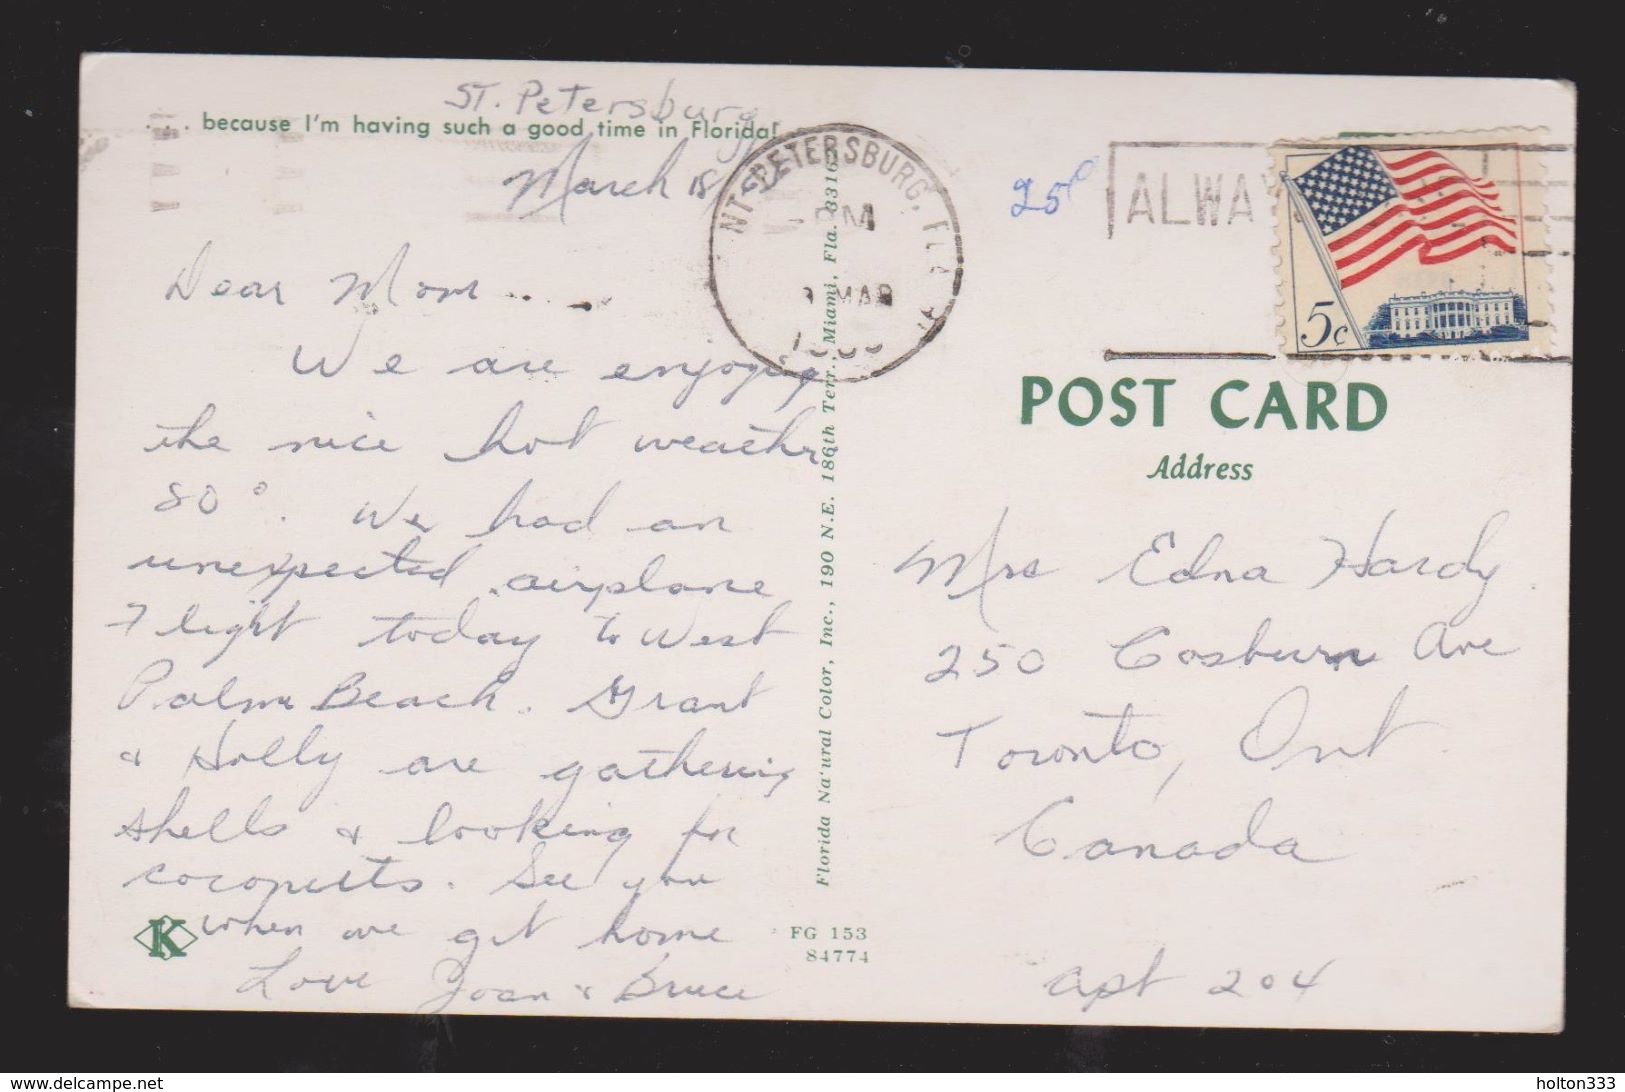 St. Petersburg
... because I'm having such a good time in Florida!
March 18
Dear Mom....
We are enjoying
the nice hot weather
80°. We had an
unexpected airplane
flight today to West
Palm Beach. Grant
& Holly are gathering
shells & looking for
coconuts. See you
when we get home
Love Joan & Bruce
K
FG 153
84774
Florida Na'ural Color, Inc., 190 N.E. 186th Terr., Miami, Fla. 33162
PETERSBURG, FLA
PM
MAR
25¢
ALWA
5c
POST CARD
Address
Mrs Edna Hardy
250 Cosburn Ave
Toronto, Ont
Canada
apt 204
delcampe.net
holton333